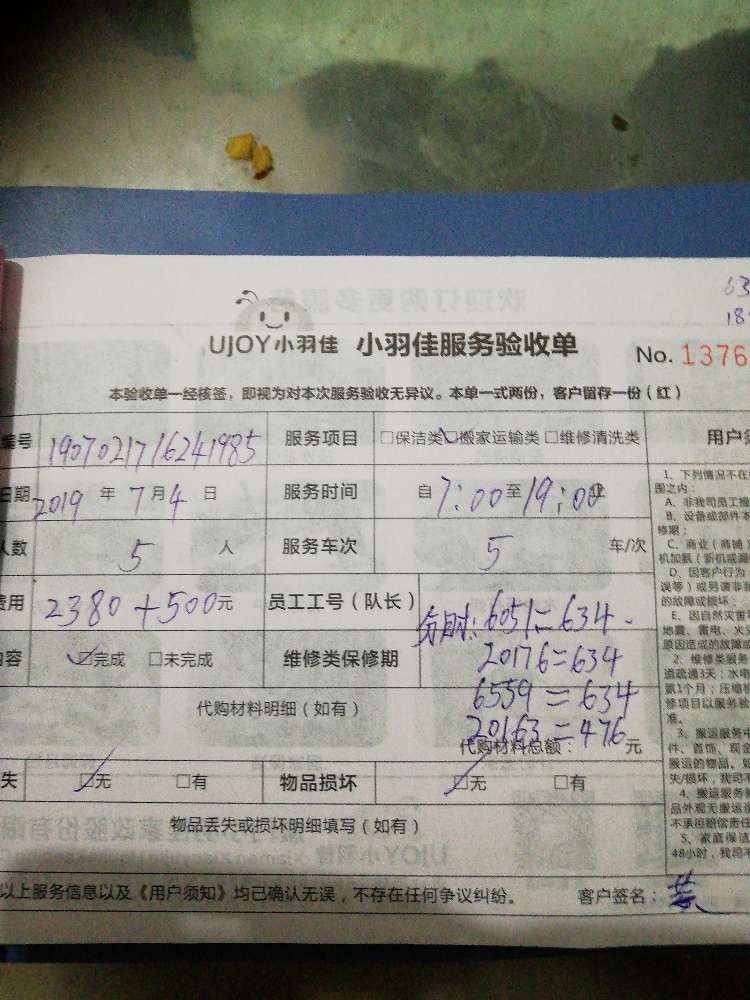 63
18
UJOY小羽佳 小羽佳服务验收单
No. 1376
本验收单一经核签，即视为对本次服务验收无异议。本单一式两份，客户留存一份（红）
编号 1907021716241985 服务项目 □保洁类 ☑搬家运输类 □维修清洗类
日期 2019 年 7 月 4 日 服务时间 自 7:00 至 19:00 止
人数 5 人 服务车次 5 车/次
费用 2380+500元 员工工号（队长） 6051=634
20176=634
内容 ☑完成 □未完成 维修类保修期
6559=634
代购材料明细（如有）
20163=476
代购材料总额： 元
失 ☑无 □有 物品损坏 ☑无 □有
物品丢失或损坏明细填写（如有）
以上服务信息以及《用户须知》均已确认无误，不存在任何争议纠纷。 客户签名：
用户须
1、下列情况不在
围之内：
A、非我司员工操
B、设备或部件本
修期；
C、商业（商铺）
机加氟（新机或漏
D、因客户行为
误等）或另请非
的故障或损坏；
E、因自然灾害
地震、雷电、火
原因造成的故障或
2、维修类服务
道疏通3天；水电
氟1个月；压缩机
修项目以服务验
准。
3、搬运服务中
件、首饰、现金
搬运的物品。如
失/损坏，我司不
4、搬运服务
品外观无搬运
不承担赔偿责任
5、家庭保洁
48小时，我司不